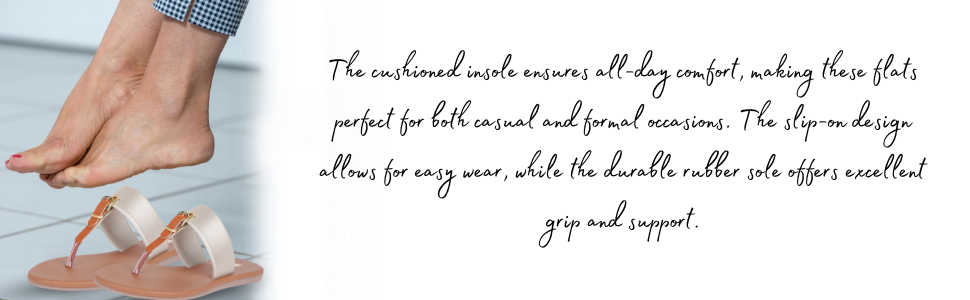 The cushioned insole ensures all-day comfort, making these flats
perfect for both casual and formal occasions. The slip-on design
allows for easy wear, while the durable rubber sole offers excellent
grip and support.